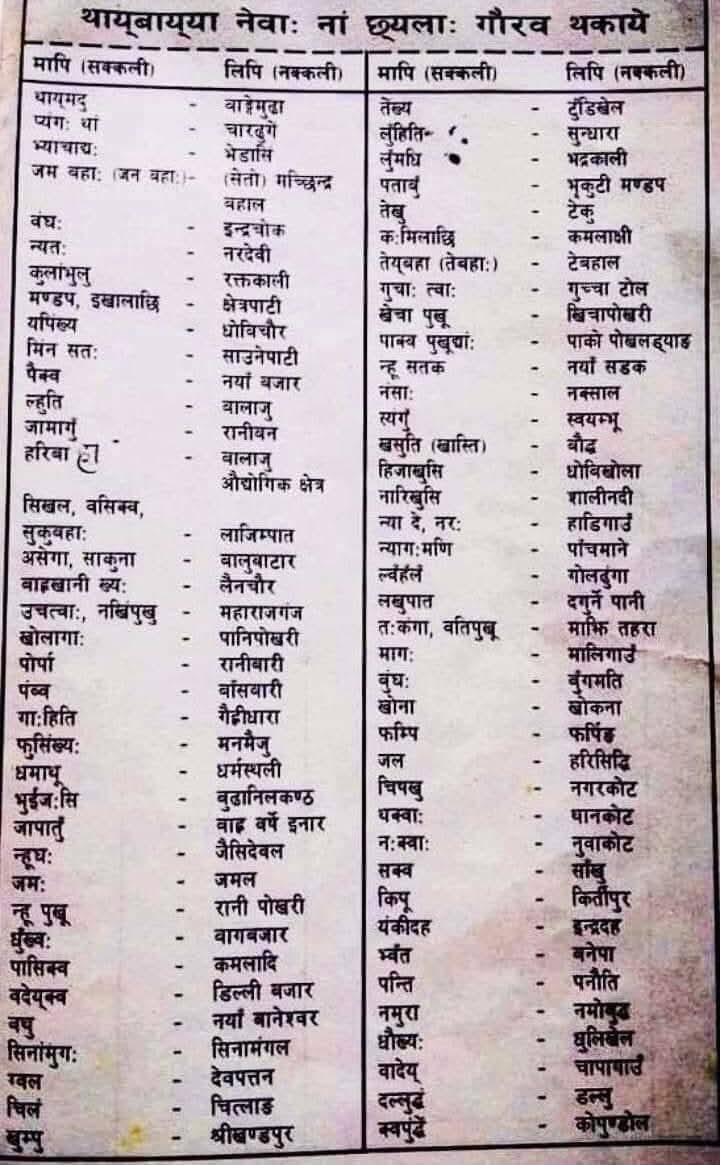 थाय्‌बाय्‌या नेवाः नां छ्यलाः गौरव थकाये
मापि (सक्कली) लिपि (नक्कली)
थाय्‌मदु - वाङ्गेमुढा
प्यंगः थां - चारढुंगे
भ्याचाद्यः - भेडासिं
जम बहाः (जन बहाः)- (सेतो) मच्छिन्द्र
बहाल
वंघः - इन्द्रचोक
न्यतः - नरदेवी
कुलांभुलु - रक्तकाली
मण्डप, इखालाछि - क्षेत्रपाटी
यपिंख्य - धोविचौर
मिन सतः - साउनेपाटी
पैक्व - नयाँ बजार
ल्हुति - बालाजु
जामागुं - रानीवन
हरिबा - बालाजु
औद्योगिक क्षेत्र
सिखल, वसिक्व,
सुकुबहाः - लाजिम्पात
असेगा, साकुना - बालुबाटार
बाह्रखानी ख्यः - लैनचौर
उचत्वाः, नखिंपुखु - महाराजगंज
खोलागाः - पानिपोखरी
पोर्पा - रानीबारी
पंब्व - बाँसबारी
गाःहिति - गैह्रीधारा
फुसिंख्यः - मनमैजु
धमाथू - धर्मस्थली
भुईजःसि - बुढानिलकण्ठ
जापातुं - बाह्र वर्षे इनार
न्हूघः - जैसिदेवल
जमः - जमल
न्हू पुखू - रानी पोखरी
धुँख्वः - बागबजार
पासिक्व - कमलादि
वदेय्‌क्व - डिल्ली बजार
बधु - नयाँ बानेश्वर
सिनांमुगः - सिनामंगल
ग्वल - देवपत्तन
चिलं - चित्लाङ
खुम्पु - श्रीखण्डपुर
मापि (सक्कली) लिपि (नक्कली)
तेंख्य - टुँडिखेल
लुंहिति- सुन्धारा
लुंमधि भद्रकाली
पताबुं - भृकुटी मण्डप
तेखु - टेकु
कःमिलाछि - कमलाक्षी
तेय्‌बहा (तेबहाः) - टेबहाल
गुचाः त्वाः - गुच्चा टोल
खेचा पुखू - खिचापोखरी
पाक्व पुखूद्यांः - पाको पोखलड्याङ
न्हू सतक - नयाँ सडक
नंसाः - नक्साल
स्यगुं - स्वयम्भू
खसुति (खास्ति) - बौद्ध
हिजाखुसि - धोबिखोला
नारिखुसि - शालीनदी
न्या दे, नरः - हाडिगाउँ
न्यागःमणि - पाँचमाने
ल्वँहँलं - गोलढुंगा
लखुपात - दगुर्ने पानी
तःकंगा, वतिपुखू - माझि तहरा
मागः - मालिगाउँ
बुंघः - बुँगमति
खोना - खोकना
फम्पि - फर्पिङ
जल - हरिसिद्धि
चिपखु - नगरकोट
थक्वाः - थानकोट
नःक्वाः - नुवाकोट
सक्व - साँखु
किपू - किर्तीपुर
यंकीदह - इन्द्रदह
भ्वंत - बनेपा
पन्ति - पनौति
नमुरा - नमोबुद्ध
धौख्यः - धुलिखेल
वादेय् - चापागाउँ
दल्लुद्वं - डल्लु
क्वपुंद्वँ - कोपुण्डोल